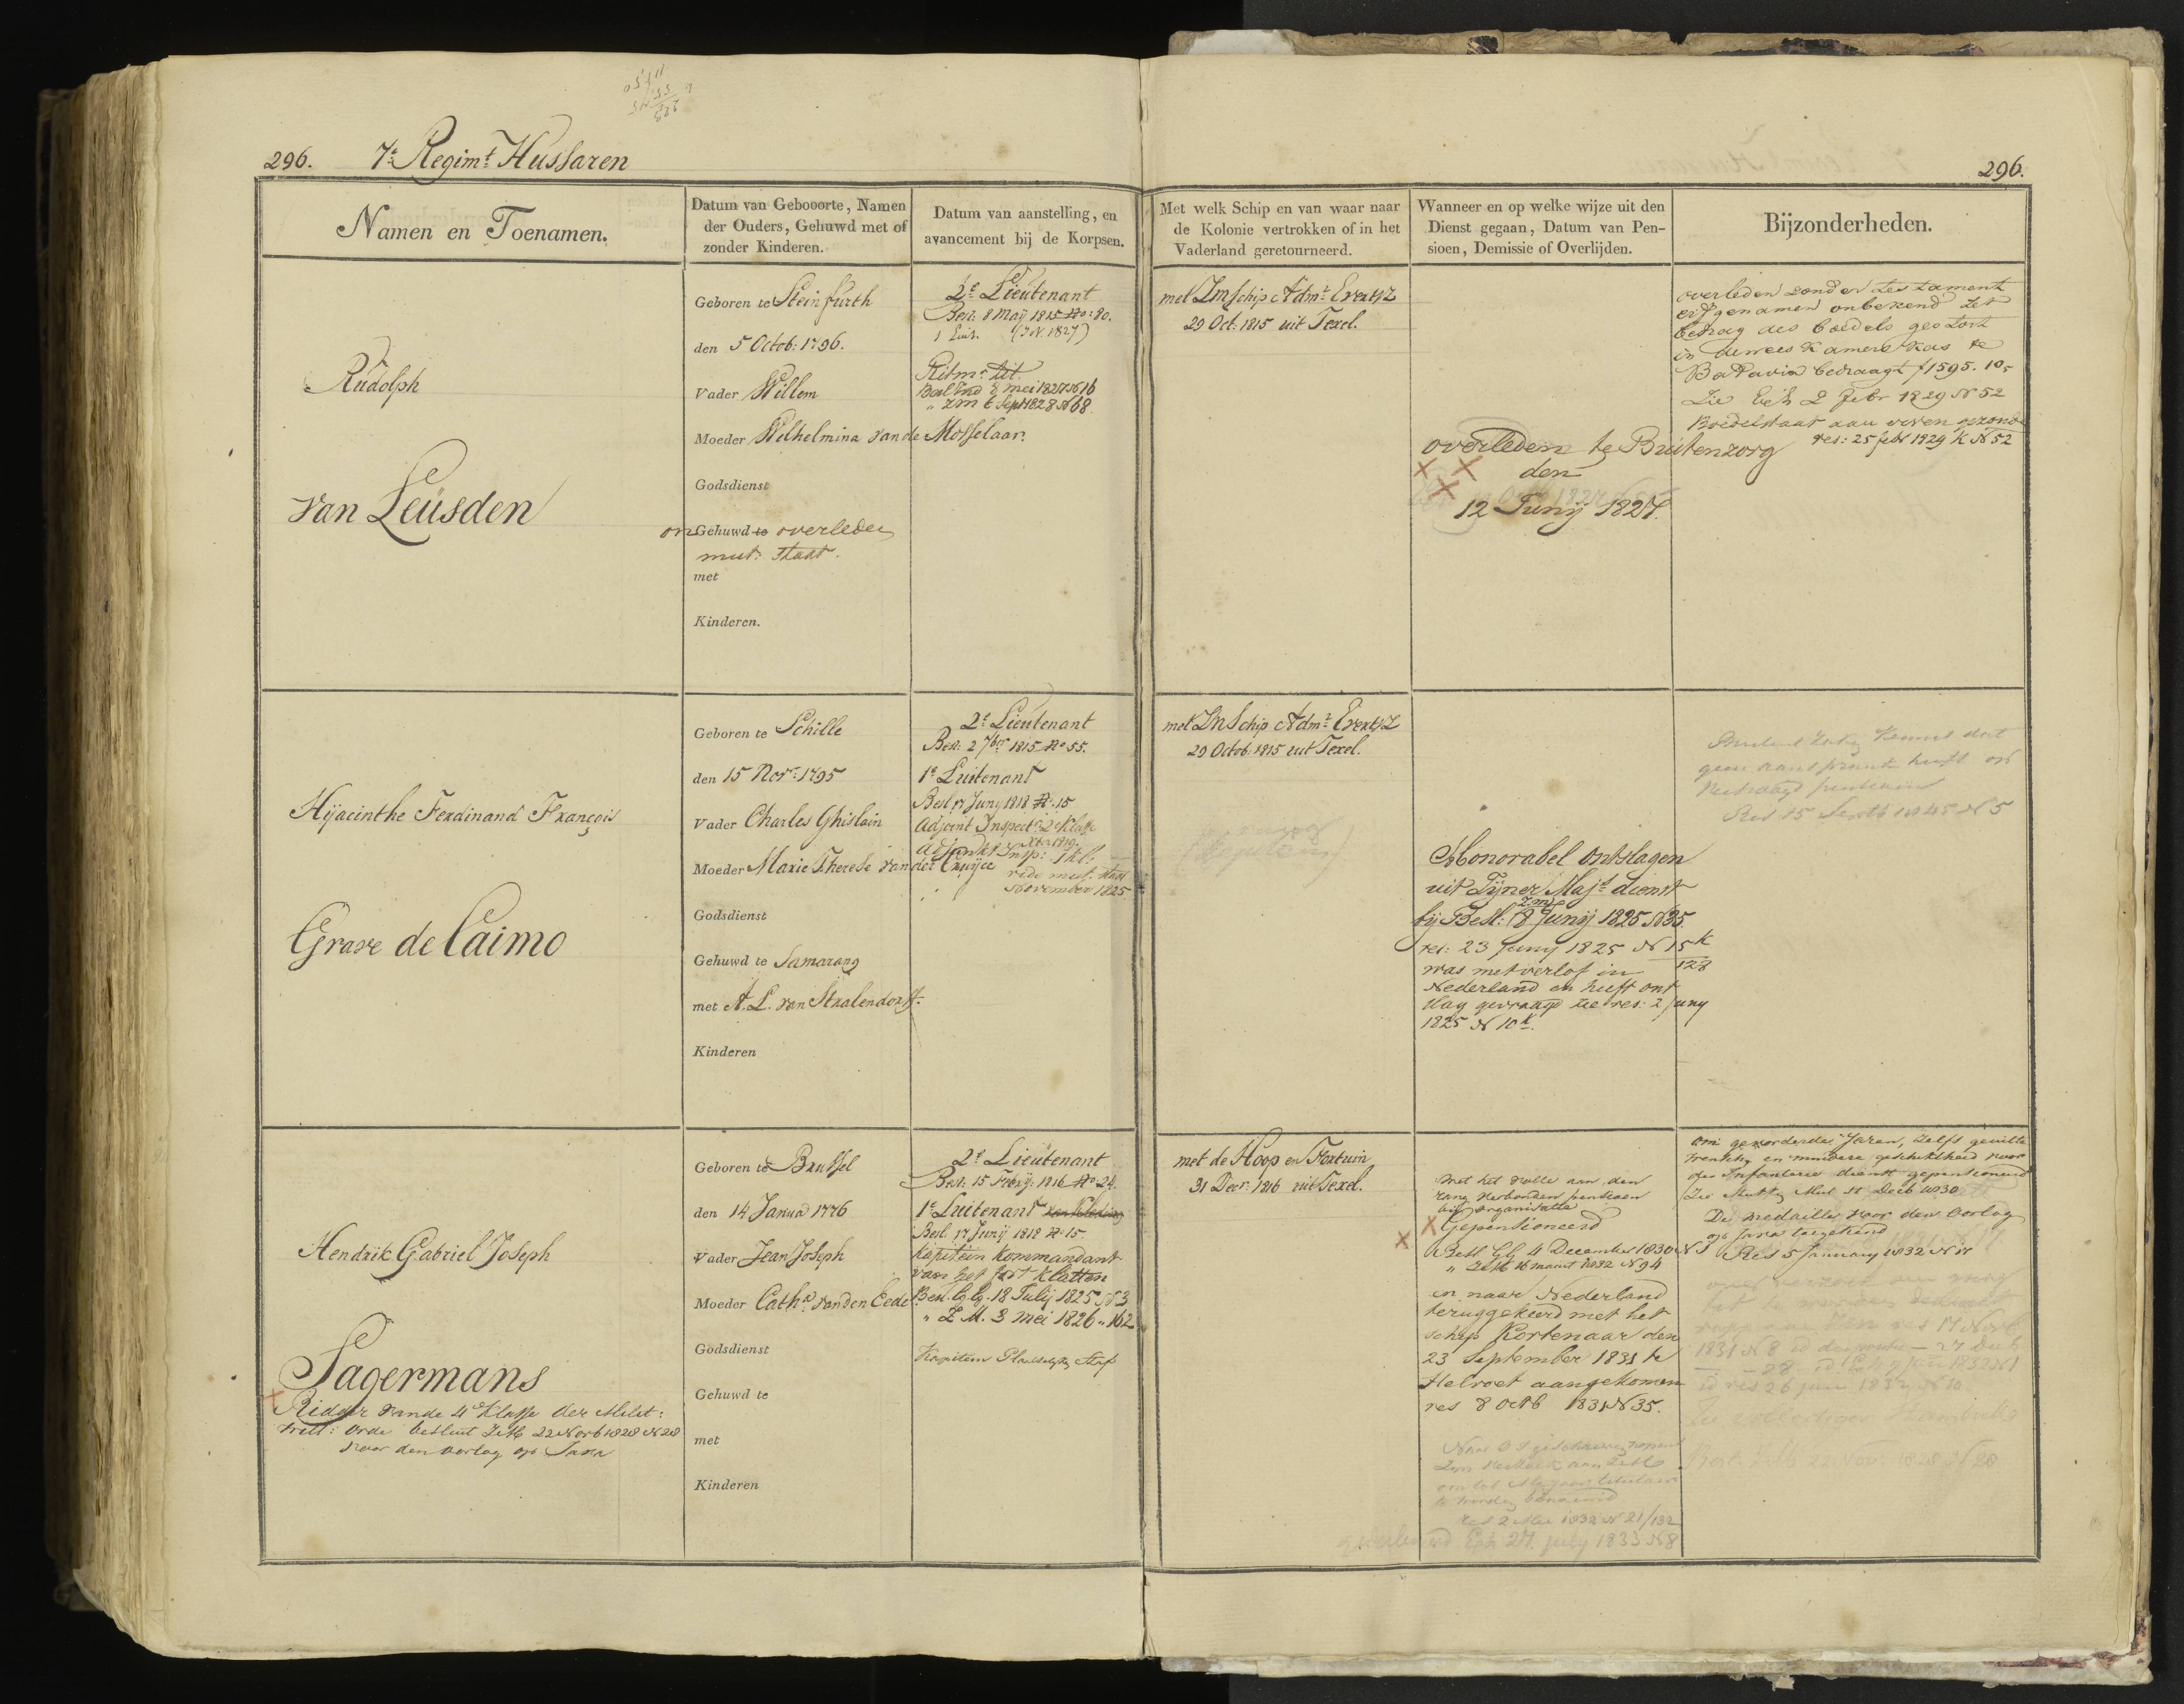 296. 7e Regimt Hussaren
296.
Namen en Toenamen.
Datum van Gebooorte, Namen
der Ouders, Gehuwd met of
zonder Kinderen.
Datum van aanstelling, en
avancement bij de Korpsen.
Met welk Schip en van waar naar
de Kolonie vertrokken of in het
Vaderland geretourneerd.
Wanneer en op welke wijze uit den
Dienst gegaan, Datum van Pen-
sioen, Demissie of Overlijden.
Bijzonderheden.
Rudolph
van Leusden
Geboren te Steinfurth
den 5 Octob: 1796.
Vader Willem
Moeder Wilhelmina van de Mosselaar.
Godsdienst
onGehuwd te overleden
mut: staat.
met
Kinderen.
2e Lieutenant
Besl: 8 Maij 1815 No: 80.
1 Luit. (J.N. 1827)
Ritmr tit.
Besl Ind 8 mei 1827 N 16
" ZM 6 Sept 1828 N 68.
met ZM schip Admt Evertsz
29 Oct: 1815 uit Texel.
overleden te Buitenzorg
den
12 Junij 1827.
overleden zonder testament
erfgenamen onbekend het
bedrag des boedels gestort
in de wees kamers kas te
Batavia bedraagt f 1595.10,
Zie 2 Febr 1829 N 52
Boedelstaat aan erven gezond
res: 25 febr 1829 K N 52
Hijacinthe Ferdinand François
Grave de Caimo
Geboren te Schille
den 15 Nov: 1795
Vader Charles Ghislain
Moeder Marie Therese van der Cruijce
Godsdienst
Gehuwd te Samarang
met A. L. van Stralendorff.
Kinderen
2e Lieutenant
Besl: 2 7ber 1815 No 55.
1e Luitenant
Besl 17 Junij 1818 N. 15
Adjoint Inspectr 2e Klasse
Adjunkt Insp: 1 kl:
vide mut: staat
November 1825
met ZM Schip Admt Evertsz
29 Octob. 1815 uit Texel.
Honorabel ontslagen
uit Zijner Majt dienst
bij Besl: ZM 8 Junij 1825 N 35.
res: 23 Junij 1825 N 15 K
128
was met verlof in
Nederland en heeft ont
slag gevraagd zie res: 2 Juny
1825 N 10 K.
geen aanspraak heeft op
Res 15 Septb 1845 N 5
Hendrik Gabriel Joseph
Sagermans
Ridder van de 4e Klasse der Milit:
Will: Orde besluit ZM 22 Novb 1828 N 28
voor den oorlog op Java
Geboren te Brussel
den 14 Janua 1776
Vader Jean Joseph
Moeder Catha van den Eede
Godsdienst
Gehuwd te
met
Kinderen
2e Lieutenant
Besl: 15 Febrij: 1816 No 24.
1e Luitenant
Besl. 17 Junij 1818 N. 15.
Kapitein kommandant
van het fort Klatten
Besl. G. G. 18 Julij 1825 N 3
" Z M. 3 mei 1826 " 162
Kapitein Plaatselijke Staf
met de Hoop en Fortuin
31 Decr. 1816 uit Texel.
met het volle aan den
rang verbonden pensioen
bij organisatie
Gepensioneerd
Besl GG 4 December 1830 N 5
" ZM 16 maart 1832 N 94
en naar Nederland
teruggekeerd met het
schip Kortenaar den
23 September 1831 te
Helvoet aangekomen
res 8 octb 1831 N 35.
om tot Majoor titulair
te worden benoemd
res 2 Mei 1832 N 21/132
27 July 1833 N 8
om gevorderde Jaren, zelfs gewilde
en mindere geschiktheid voor
de Infanterie dienst gepensioneerd
Zie Mut Decb 1830
De medaille voor den Oorlog
op Java toegekend
Res 5 January 1832 N 17
17 Novb
1831 N 8
27 Decb
res 26 juni 1832 N 10
Besl. ZM 22 Nov 1828 N 28